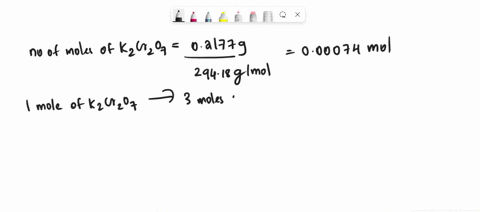 no of moles of K₂Cr₂O₇ = 0.2177g / 294.18 g/mol = 0.00074 mol
1 mole of K₂Cr₂O₇ → 3 moles